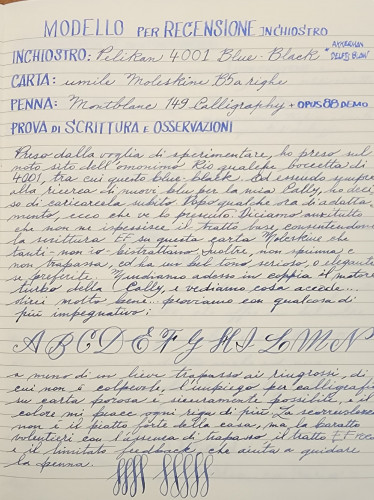 MODELLO PER RECENSIONE INCHIOSTRO
INCHIOSTRO: Pelikan 4001 Blue-Black
CARTA: umile Moleskine B5 a righe
PENNA: Montblanc 149 Calligraphy + OPUS 88 DEMO
PROVA DI SCRITTURA E OSSERVAZIONI
Preso dalla voglia di sperimentare, ho preso sul
noto sito dell'omonimo Rio qualche boccetta di
4001, tra cui questo blue-black. Ed essendo sempre
alla ricerca di nuovi blu per la mia Cally, ho deci
so di caricarcela subito. Dopo qualche ora di adatta
mento, ecco che ve lo presento. Diciamo anzitutto
che non me ispessisce il tratto base, consentendomi
la scrittura EF su questa carta Moleskine che
tanti-non io-bistrattano; inoltre, non spiuma e
non trapassa, ed ha un bel tono serioso, o elegante
se preferite. Mandiamo adesso in coppia il motore
turbo della Cally, e vediamo cosa accade...
direi molto bene... proviamo con qualcosa di
più impegnativo:
A B C D E F G H I L M N
a meno di un lieve trapasso ai ringrossi, di
cui non è colpevole, l'impiego per calligrafia
su carta porosa è sicuramente possibile, e il
colore mi piace ogni riga di più. La scorrevolezza
non è il piatto forte della casa, ma la baratto
volentieri con l'assenza di trapasso, il tratto EF
e il limitato feedback che aiuta a guidare
la penna.